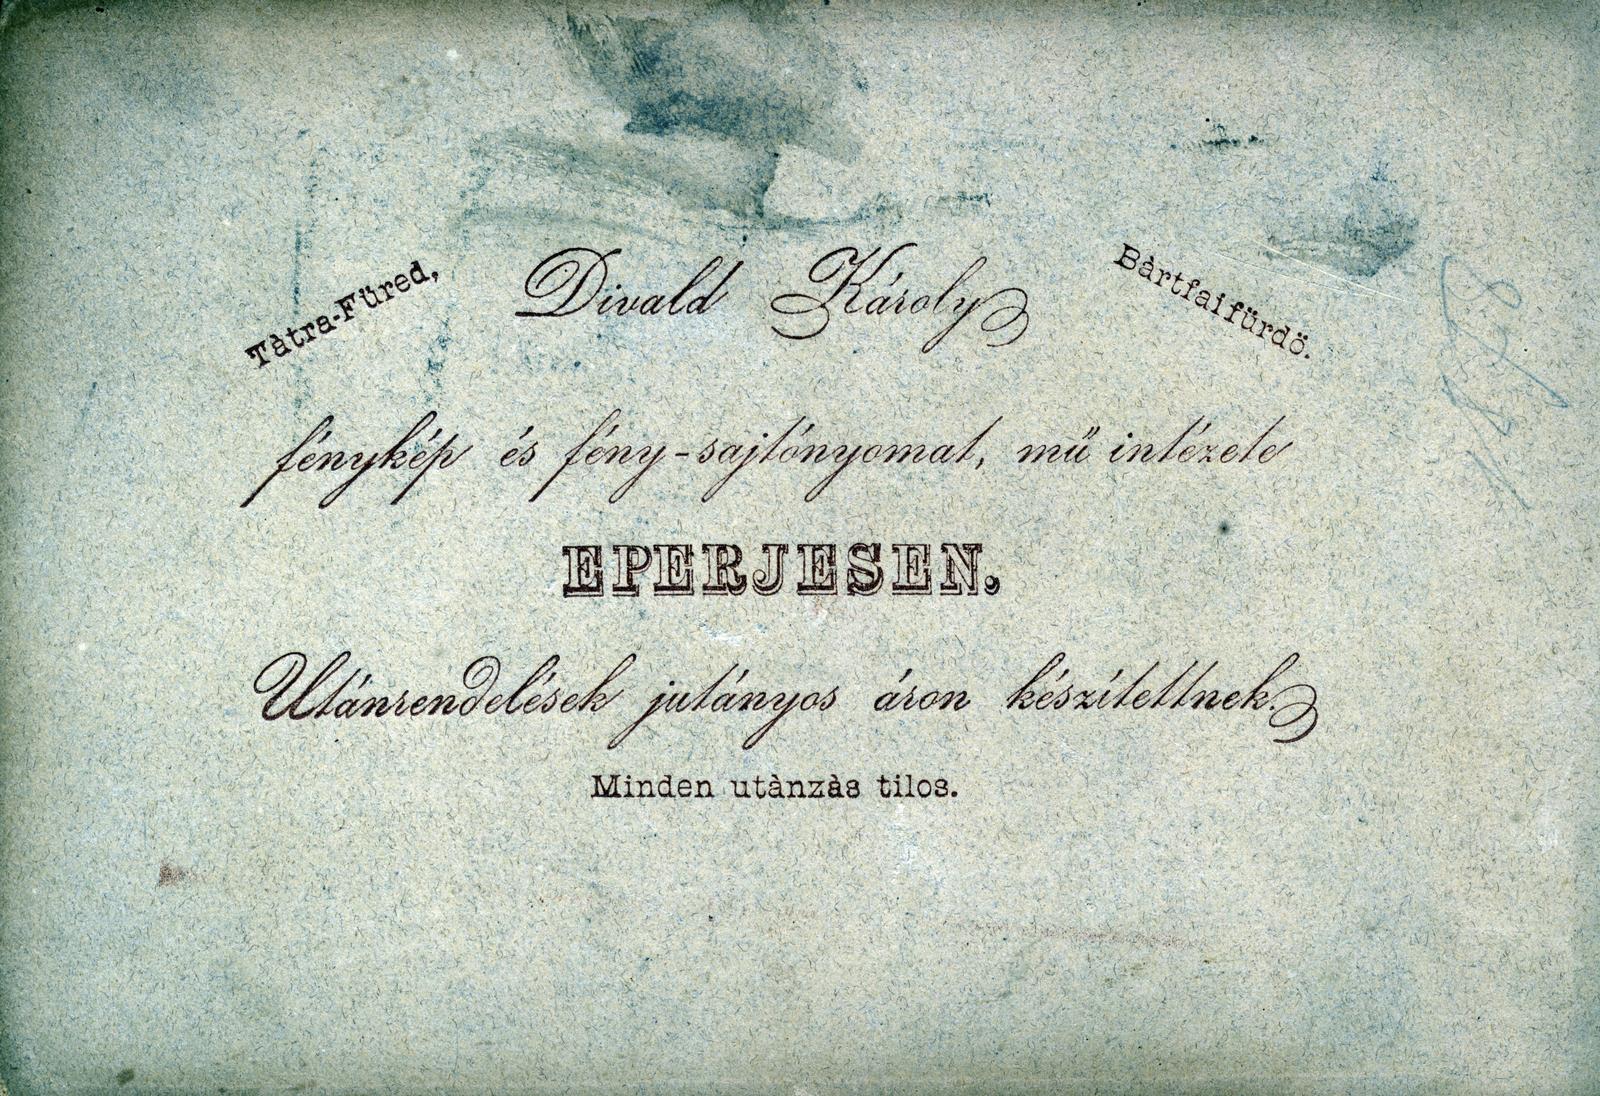 Tàtra-Füred,
Divald Károly
Bàrtfaifürdö.
fénykép és fény-sajtónyomat, mű intézete
EPERJESEN.
Utánrendelések jutányos áron készítettnek.
Minden utànzàs tilos.